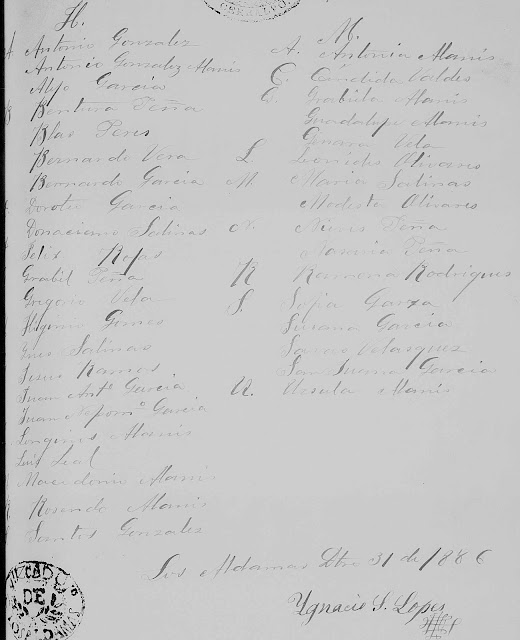 H.
Antonio Gonzalez
Antonio Gonzalez Alanis
Alejo Garcia
Bentura Peña
Blas Peres
Bernardo Vera
Bernardo Garcia
Doroteo Garcia
Donaciano Salinas
Felix Rojas
Grabil Peña
Gregorio Vela
Higinio Gomes
Ines Salinas
Jesus Ramos
Juan Antº Garcia
Juan Nepomº Garcia
Longinis Alanis
Luis Leal
Macedonio Alanis
Rosendo Alanis
Santos Gonzalez
M.
A. Antonia Alanis
C. Candida Valdes
G. Grabiela Alanis
Guadalupe Alanis
Genara Vela
L. Leonides Olivares
M. Maria Salinas
Modesta Olivares
N. Nieves Peña
Narcisa Peña
R. Ramona Rodriguez
S. Sofia Garza
Susana Garcia
Savas Velasquez
San Juana Garcia
U. Ursula Alanis
Los Aldamas Dbre 31 de 1886
Ygnacio S. Lopez
DE